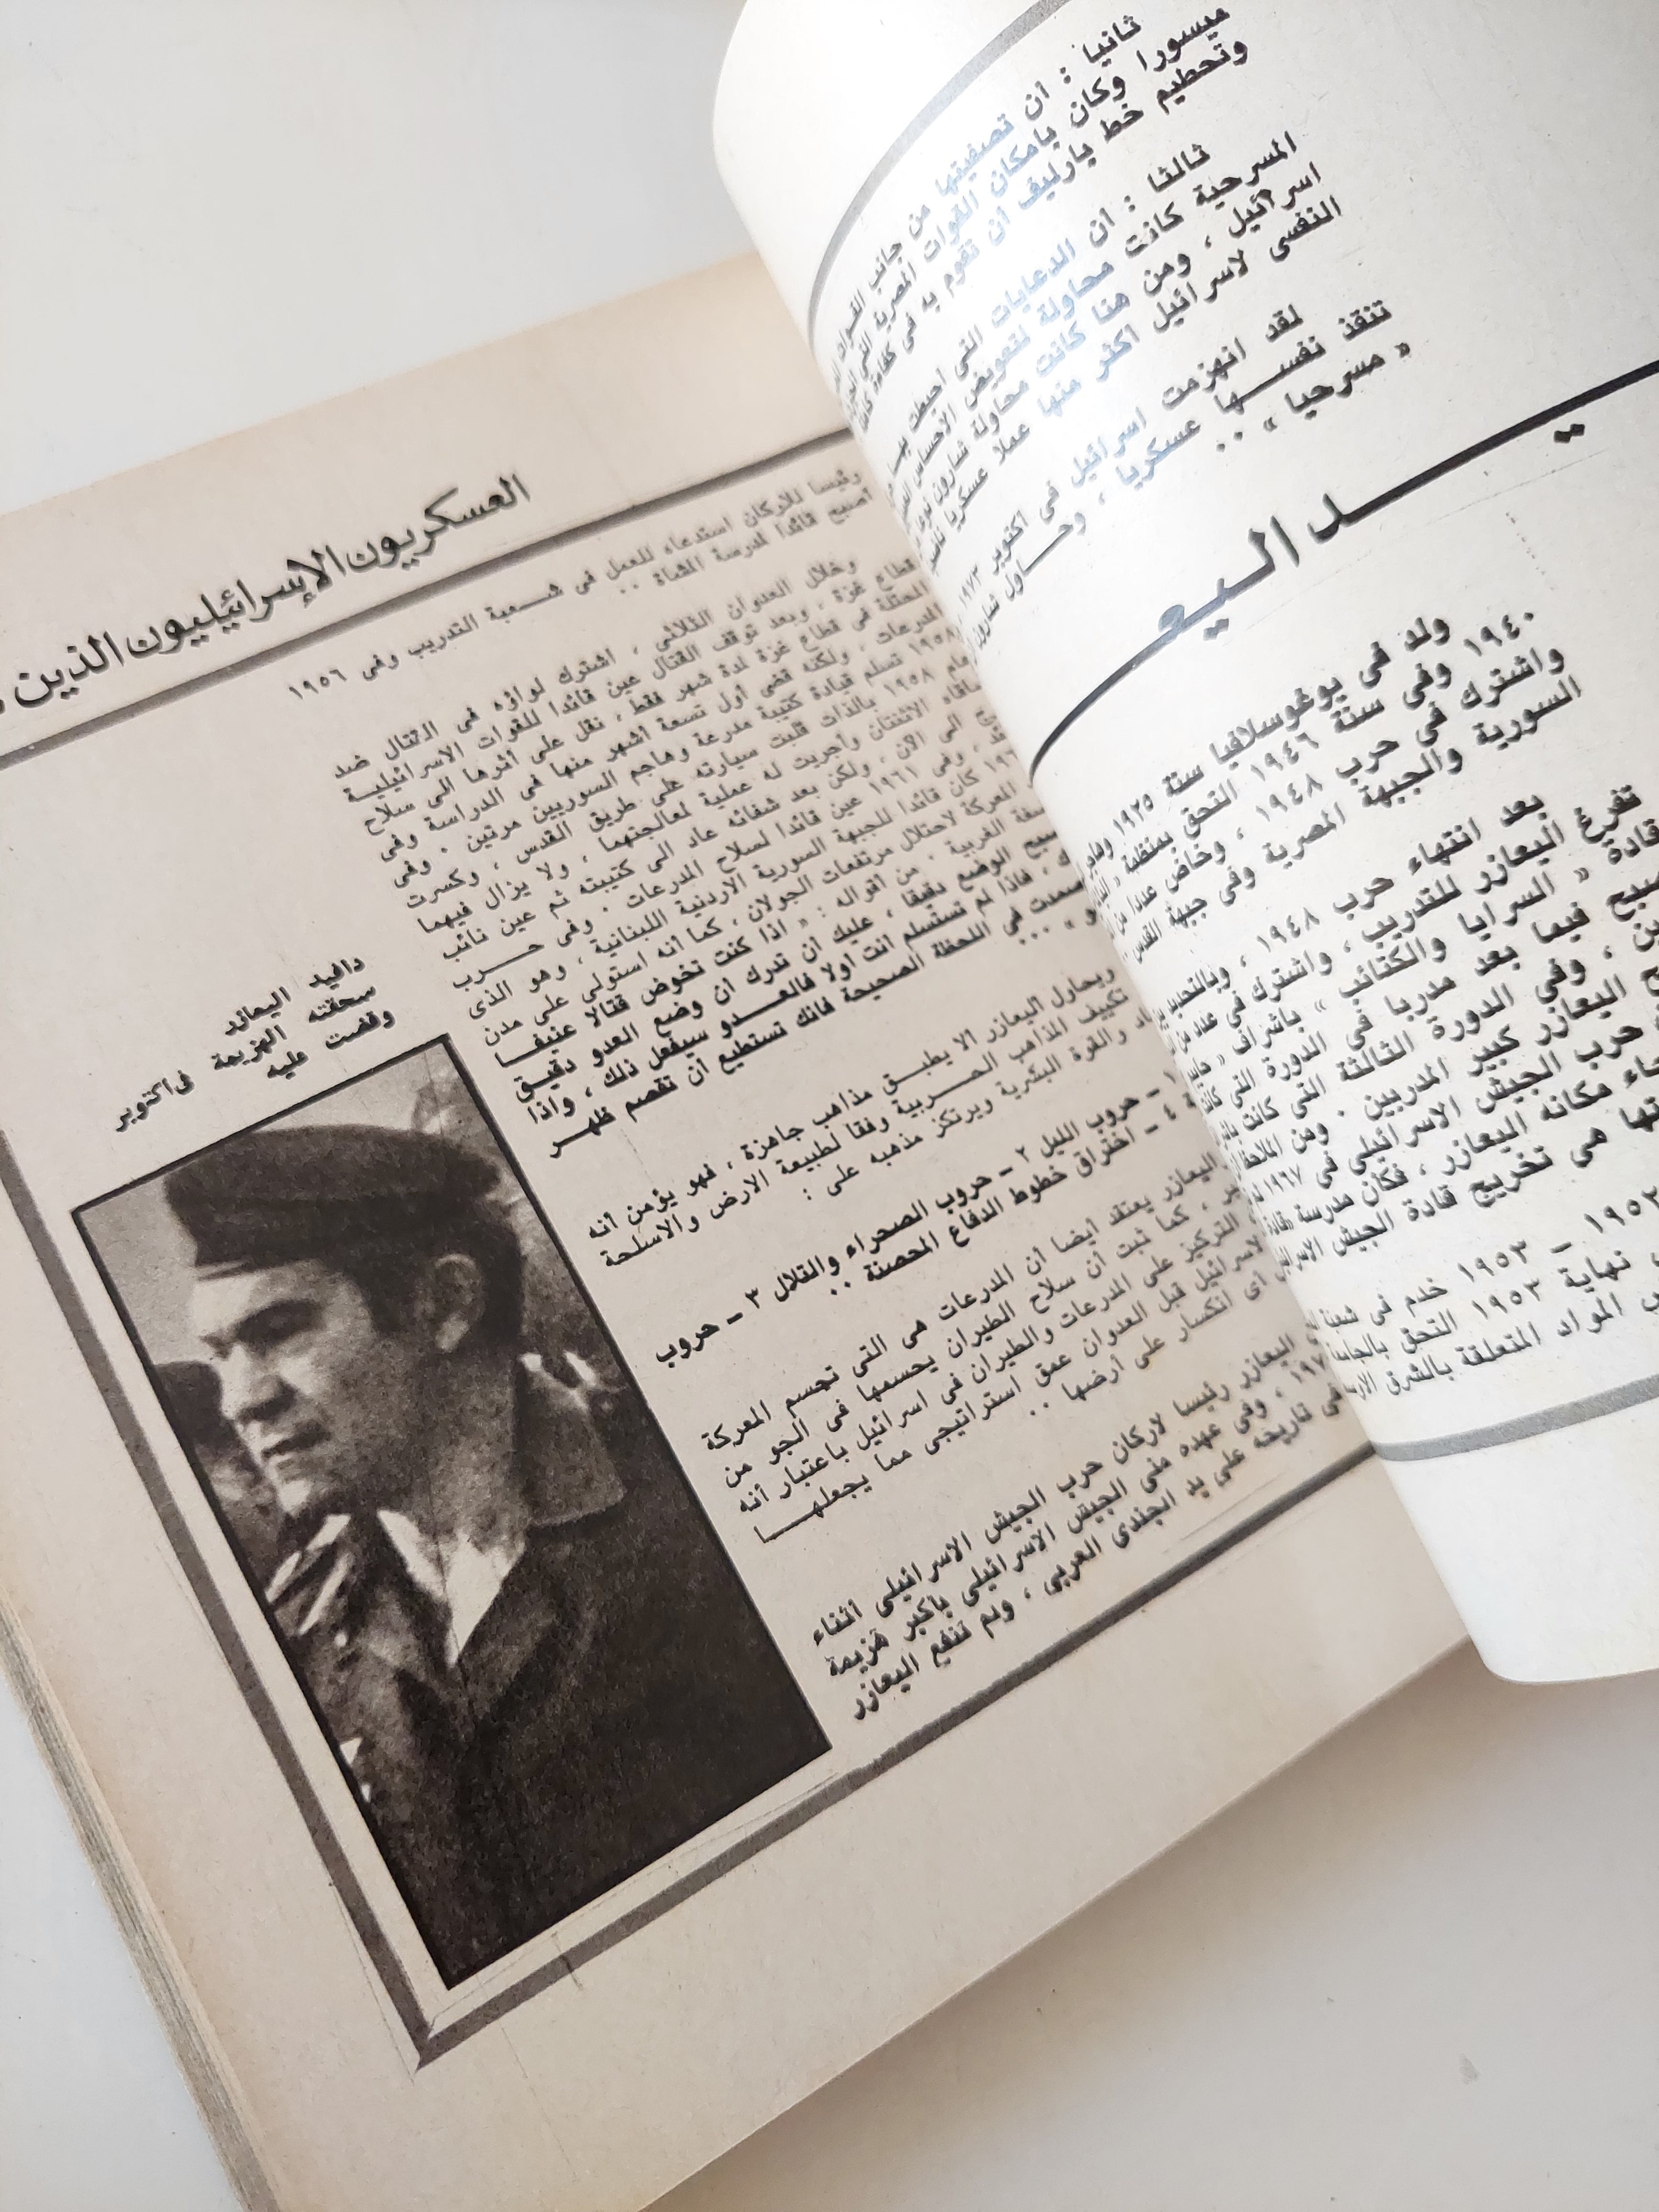 ثانيا : ان تصفيتها من جانب القوات
ميسورا وكان بامكان القوات المصرية التى
وتحطيم خط بارليف أن تقوم به فى
ثالثا : أن الدعايات التى احيطت بها
المسرحية كانت محاولة لتعويض الاحساس
اسرائيل ، ومن هنا كانت محاولة شارون
النفسى لاسرائيل اكثر منها عملا عسكريا
لقد انهزمت اسرائيل فى اكتوبر ١٩٧٣
تنقذ نفسها عسكريا ، وحاول شارون
« مسرحيا » ..
يد اليعـ
ولد فى يوغوسلافيا سنة ١٩٢٥ وهاجر
١٩٤٠ وفى سنة ١٩٤٦ التحق بمنظمة
واشترك فى حرب ١٩٤٨ ، وخاض عددا من
السورية والجبهة المصرية وفى جبهة القدس
بعد انتهاء حرب ١٩٤٨ ، وبالتحديد
تفرغ اليعازر للتدريب ، واشترك فى عدد من
قادة « السرايا والكتائب » باشراف
فيما بعد مدربا فى الدورة التى كانت
، وفى الدورة الثالثة التى كانت
اليعازر كبير المدربين . ومن
حرب الجيش الاسرائيلى فى ١٩٦٧
مكانه اليعازر ، فكان مدرسة
هى تخريج قادة الجيش
– ١٩٥٣ خدم فى
نهاية ١٩٥٣ التحق
المواد المتعلقة بالشرق
العسكريون الإسرائيليون الذين
رئيسا للاركان استدعاه للعمل فى شعبة التدريب وفى ١٩٥٦
أصبح قائدا لمدرسة المشاة ..
وخلال العدوان الثلاثى ، اشترك لواؤه فى القتال ضد
قطاع غزة ، وبعد توقف القتال عين قائدا للقوات الاسرائيلية
المحتلة فى قطاع غزة لمدة شهر فقط ، نقل على أثرها الى سلاح
المدرعات ، ولكنه قضى أول تسعة أشهر منها فى الدراسة وفى
١٩٥٨ تسلم قيادة كتيبة مدرعة وهاجم السوريين مرتين . وفى
عام ١٩٥٨ بالذات قلبت سيارته على طريق القدس ، وكسرت
ساقاه الاثنتان وأجريت له عملية لمعالجتهما ، ولا يزال فيهما
الى الان ، ولكن بعد شفائه عاد الى كتيبته ثم عين نائب
، وفى ١٩٦١ عين قائدا لسلاح المدرعات . وفى حرب
كان قائدا للجبهة السورية الاردنية اللبنانية ، وهو الذى
المعركة لاحتلال مرتفعات الجولان ، كما أنه استولى على مدن
الغربية . من أقواله : « اذا كنت تخوض قتالا عنيفا
الوضع دقيقا ، عليك أن تدرك أن وضع العدو دقيق
، فاذا لم تستسلم انت أولا فالعدو سيفعل ذلك ، واذا
صمدت فى اللحظة الصحيحة فانك تستطيع أن تقصم ظهر
» ...
ويحاول اليعازر الا يطبق مذاهب جاهزة ، فهو يؤمن أنه
تكييف المذاهب الحربية وفقا لطبيعة الارض والاسلحة
والقوة البشرية ويرتكز مذهبه على :
١ – حروب الليل ٢ – حروب الصحراء والتلال ٣ – حروب
٤ – اختراق خطوط الدفاع المحصنة ..
اليعازر يعتقد أيضا أن المدرعات هى التى تحسم المعركة
، كما ثبت أن سلاح الطيران يحسمها فى الجو من
التركيز على المدرعات والطيران فى اسرائيل باعتبار أنه
لاسرائيل قبل العدوان عمق استراتيجى مما يجعلها
أى انكسار على أرضها ..
اليعازر رئيسا لاركان حرب الجيش الاسرائيلى أثناء
، وفى عهده منى الجيش الاسرائيلى باكبر هزيمة
فى تاريخه على يد الجندى العربى ، ولم تنفع اليعازر
دافيد اليعازر
سحقته الهزيمة فى اكتوبر
وقضت عليه